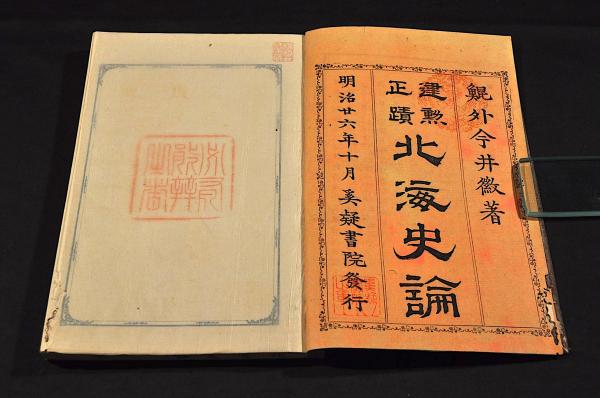 鯤外今井徽著
建勲
正蹟
北海史論
明治廿六年十月 奚疑書院發行